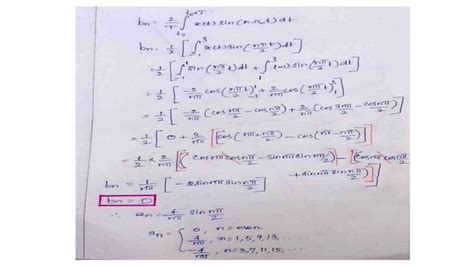 bn = 2/T ∫ x(t) sin(n ω₀ t) dt
bn = 1/2 [∫₋₁³ x(t) sin(nπ/2 t) dt]
= 1/2 [∫₋₁¹ sin(nπ/2 t) dt + ∫₁³ (-1) sin(nπ/2 t) dt]
= 1/2 [-2/nπ (cos nπ/2 t)₋₁¹ + 2/nπ (cos nπ/2 t)₁³]
= 1/2 [-2/nπ (cos nπ/2 - cos nπ/2) + 2/nπ (cos 3nπ/2 - cos nπ/2)]
= 1/2 [0 + 2/nπ [cos(nπ + nπ/2) - cos(nπ - nπ/2)]]
= 1/2 × 2/nπ [(cos nπ cos nπ/2 - sin nπ sin nπ/2) - (cos nπ cos nπ/2
+ sin nπ sin nπ/2)]
bn = 1/nπ [-2 sin nπ sin nπ/2]
bn = 0
∴ an = 4/nπ sin nπ/2
an = { 0, n = even
4/nπ, n = 1, 5, 9, 13, ...
-4/nπ, n = 3, 7, 11, 15, ...